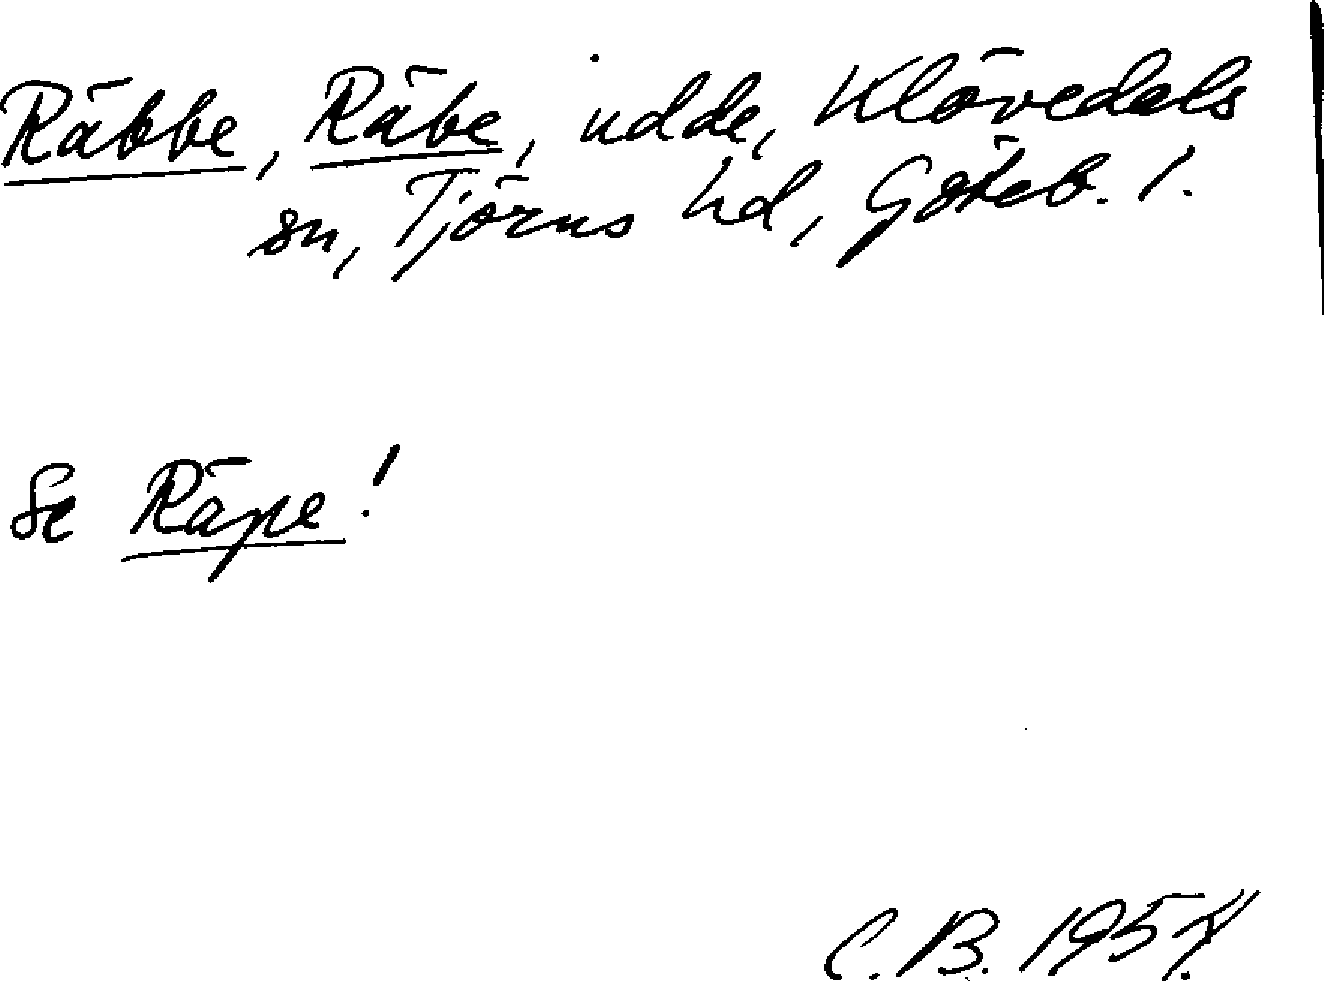 Räbbe, Räbe, udde, Klövedals
sn, Tjörns hd, Göteb. l.
Se Räpe!
C.B. 1957.